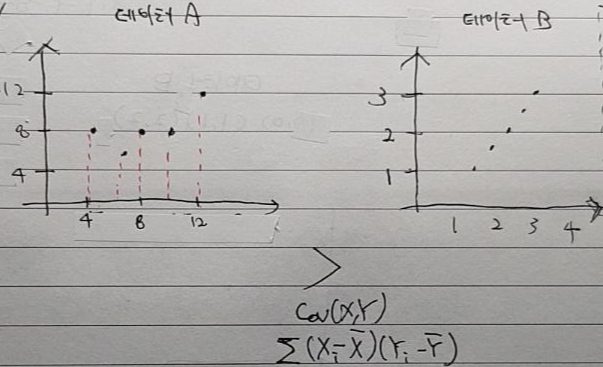 데이터 A
데이터 B
12
8
4
4 8 12
3
2
1
1 2 3 4
>
Cov(X,Y)
∑(Xᵢ-X̄)(Yᵢ-Ȳ)